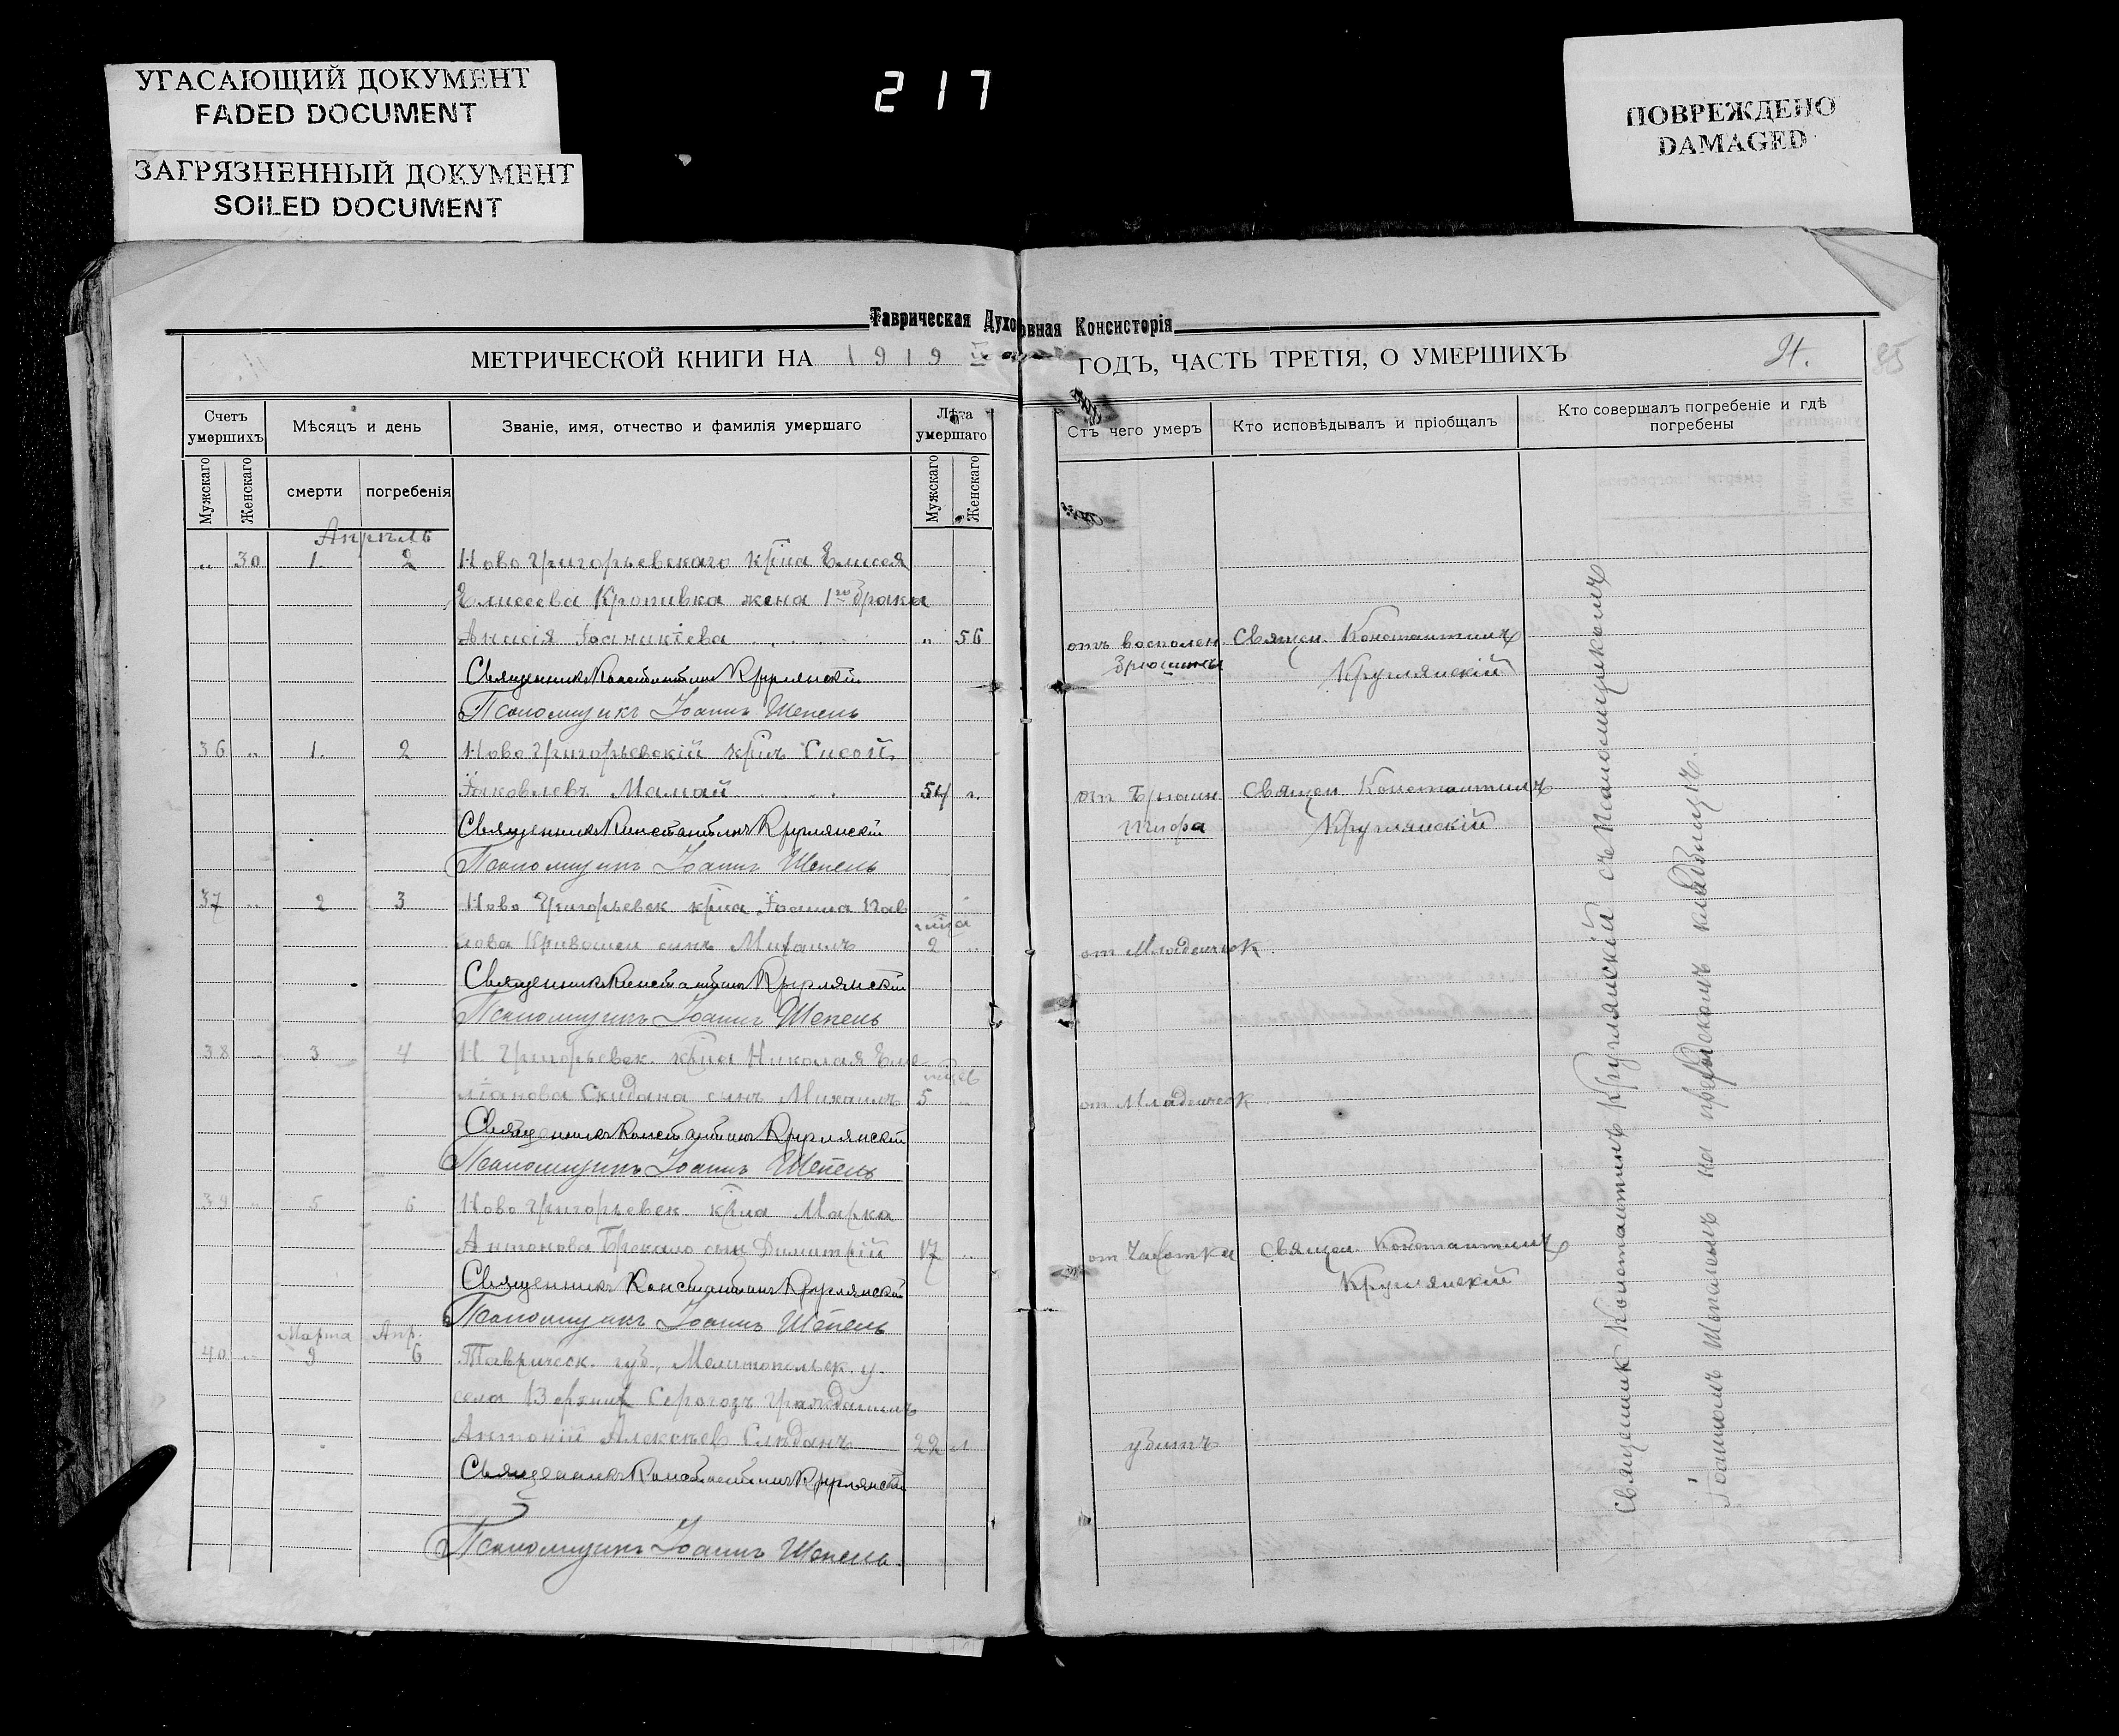 УГАСАЮЩИЙ ДОКУМЕНТ
FADED DOCUMENT
ЗАГРЯЗНЕННЫЙ ДОКУМЕНТ
SOILED DOCUMENT
217
ПОВРЕЖДЕНО
DAMAGED
Таврическая Духовная Консисторія
МЕТРИЧЕСКОЙ КНИГИ НА 1919 ГОДЪ, ЧАСТЬ ТРЕТІЯ, О УМЕРШИХЪ
85
Счетъ умершихъ
Мѣсяцъ и день
Званіе, имя, отчество и фамилія умершаго
Лѣта умершаго
Мужскаго
Женскаго
смерти
погребенія
Мужскаго
Женскаго
Отъ чего умеръ
Кто исповѣдывалъ и пріобщалъ
Кто совершалъ погребеніе и гдѣ погребены
Апрѣль
„ 30 1. 2 Ново Григорьевскаго кр̃на Елисея
Елисеева Кропивка жена 1го брака
Анисія Іоаникіева „ 56 отъ восполен. Священ. Константинъ
Брюшины Круглянскій
Священникъ Константинъ Круглянскій
Псаломщикъ Іоаннъ Шепель
36 „ 1. 2 Ново Григорьевскій кр̃нъ Сисой
Іаковлевъ Мамай 54 „ от Брюшн Священ Константинъ
тифа Круглянскій
Священникъ Константинъ Круглянскій
Псаломщикъ Іоаннъ Шепель
37 „ 2 3 Ново Григорьевск кр̃на Іоанна Пав
лова Кривошеи сынъ Михаилъ 2 „ от Младенческ.
Священникъ Константинъ Круглянскій
Псаломщикъ Іоаннъ Шепель
38 „ 3 4 Н. Григорьевск. кр̃на Николая Еме-
ліанова Скидана сынъ Михаилъ 5 „ от Младенческ
Священникъ Константинъ Круглянскій
Псаломщикъ Іоаннъ Шепель
39 „ 5 6 Ново Григорьевск. кр̃на Марка
Антонова Брекало сынъ Димитрій 17 „ от Чахотки Священ. Константинъ
Круглянскій
Священникъ Константинъ Круглянскій
Псаломщикъ Іоаннъ Шепель
Марта Апр.
40 „ 9 6 Таврическ. губ., Мелитопольск. у.
села Верхнихъ Серогозъ гражданинъ
Антоній Алексѣев Слѣданъ 22 л убитъ
Священникъ Константинъ Круглянскій
Псаломщикъ Іоаннъ Шепель.
Священник Константинъ Круглянскій съ Псаломщикомъ
Іоанномъ Шепелемъ на приходскомъ кладбищѣ.